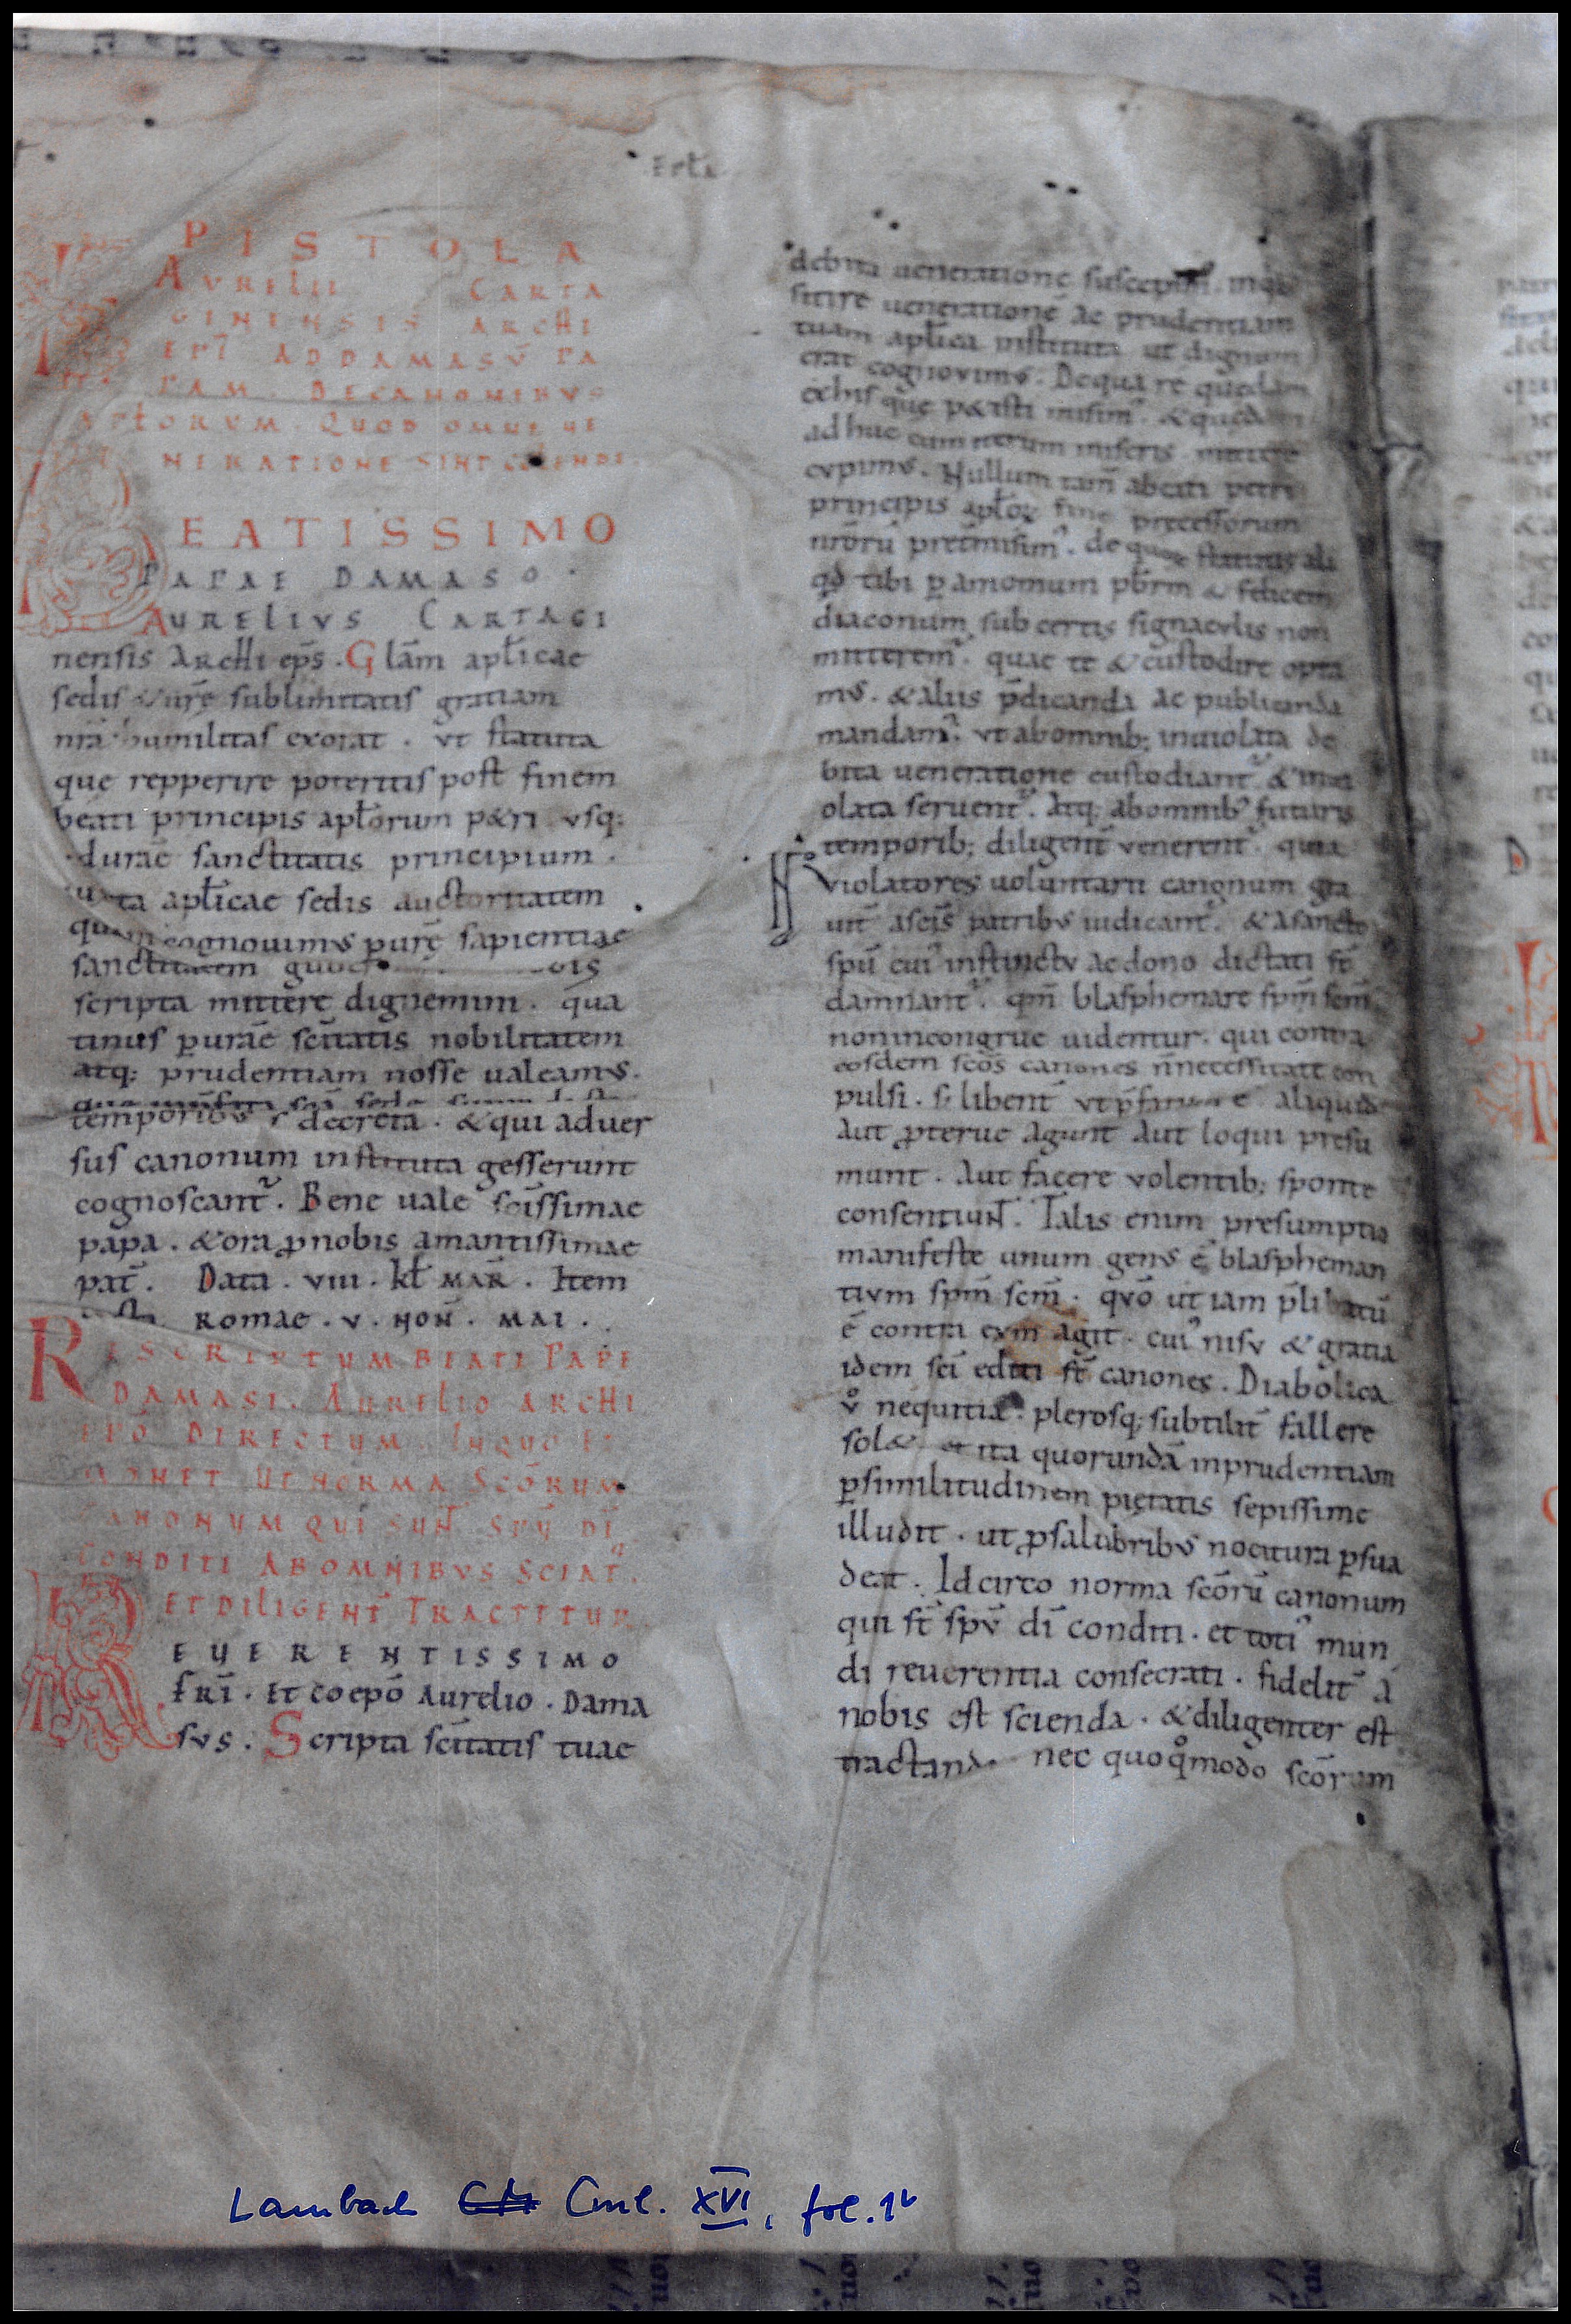 Epla
EPISTOLA
AURELII CARTA
GINENSIS ARCHI
EPI AD DAMASŪ PA
PAM. DE CANONIBUS
APŁORUM. QUOD OMNI UE
NERATIONE SINT COLENDI.
BEATISSIMO
PAPAE DAMASO.
AURELIUS CARTAGI
nensis Archi ep̄s. Glām apłicae
sedis & ur̄ę sublimitatis gratiam
nr̄a humilitas exorat. ut statuta
que repperire poteritis post finem
beati principis apłorum p&ri usq;
 durāe sanctitatis principium.
iuxta apłicae sedis auctoritatem
quam cognouimus p urę̄ sapientiae
sanctitatem
scripta mittere dignemini. qua
tinus p urāe sc̄itatis nobilitatem
atq; prudentiam nosse ualeamus.
temporibus decreta. & qui aduer
sus canonum instituta gesserunt
cognoscant᷑. Bene uale sc̄issimae
papa. & ora p nobis amantissimae
pat̄. Data. VIII. kł MAR̄. Item
Romae. V. NON̄. MAI.
RESCRIPTUM BEATI PAPE
DAMASI. AURELIO ARCHI
EPŌ DIRECTUM. IN QUO
UT NORMA SCŌRUM
CANONUM QUI SUNT SPŪ DĪ
CONDITI AB OMNIBUS SCIAT᷑.
ET DILIGENT̄ TRACTETUR
REUERENTISSIMO
FRĪ. Et coepō Aurelio. Dama
sus. Scripta sc̄itatis tuae
debita ueneratione suscepim᷒. inqui
sitire uenerationē ac prudentiam
tuam apłica instituta ut dignum
erat cognouimus. De qua re quędam
ex his que p&isti misim᷒. & quędam
ad huc cum iterum miseris mittere
cupimus. Nullum tam̄ a beati petri
principis apłoꝝ fine precessorum
nr̄orū pretermisim᷒. de quorum statutis ali
qd̄ tibi p amomum pb̄rm & felicem
diaconum sub certis signaculis non
mitterem᷒. quae te & custodire opta
mus. & aliis p̄dicanda ac publicanda
mandam᷒. ut ab omnib; inuiolata de
bita ueneratione custodiant᷑ & inui
olata seruent᷑. Atq; ab omnib᷒ futuris
temporib; diligent̄ uenerent᷑. quia
uiolatores uoluntarii canonum gra
uit̄ a sc̄is patribus iudicant᷑. & a sancto
spū cui᷒ instinctu ac dono dictati st̄
damnant᷑. qm̄ blasphemare spm̄ sc̄m
non incongrue uidentur. qui contra
eosdem sc̄os canones n̄ necessitate con
pulsi. s; libent̄ ut p̄fixum e aliquid
aut pterue agunt aut loqui presu
munt. aut facere uolentib; sponte
consentiunt. Talis enim presumptio
manifeste unum genus ē blaspheman
tium spm̄ sc̄m. quō ut iam p̄libatū
ē contra eum agit. cui᷒ nisu & gratia
idem sc̄i editi st̄ canones. Diabolica
ů nequitia. plerosq; subtilit̄ fallere
sol& et ita quorundā inprudentiam
p similitudinem pietatis sepissime
illudit. ut p salubribus nocitura p sua
deat. Idcirco norma sc̄orū canonum
qui st̄ spū dī conditi. et toti᷒ mun
di reuerentia consecrati. fidelit̄ a
nobis est scienda. & diligenter est
tractanda nec quoq̊modo sc̄orum
Lambach Cml. XVI, fol. 1v